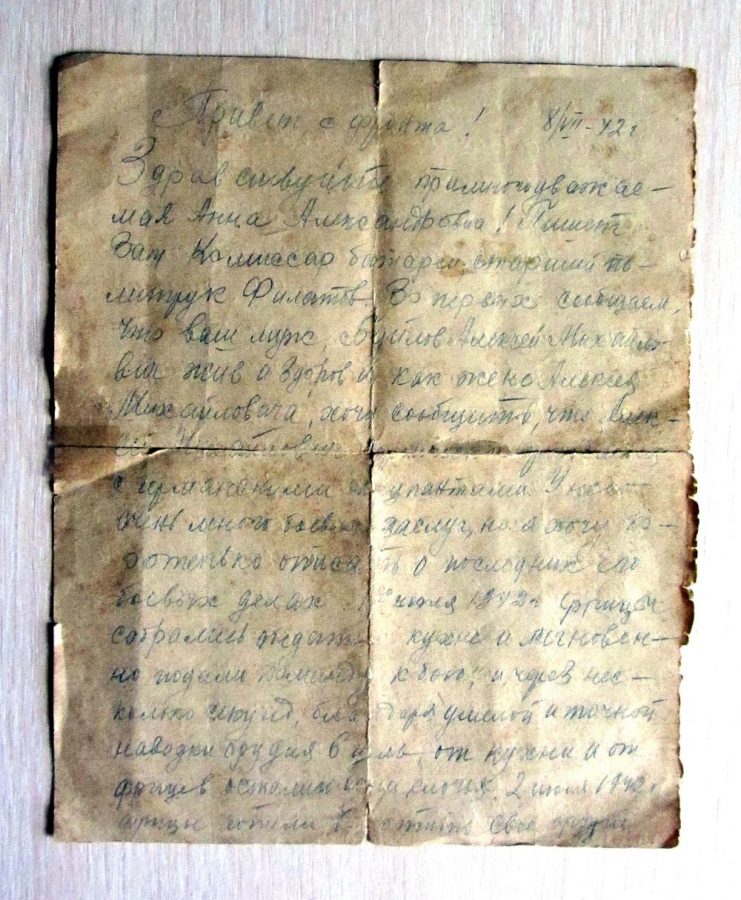 Привет с фронта! 8/VII-42г
Здравствуйте многоуважае-
мая Анна Александровна! Пишет
Вам Комиссар батареи старший по-
литрук Филатов. Во первых сообщаем,
что ваш муж, Алексей Михайло-
вич жив и здоров и как жене Алексея
Михайловича, хочу сообщить, что Алек-
сей Михайлович
с германскими оккупантами У него
очень много боевых заслуг, но я хочу ко-
ротенько описать о последних его
боевых делах июля 1942г фрицы
собрались обедать кухне и мгновен-
но подали команду к бою, и через нес-
колько секунд, благодаря умелой и точной
наводки орудия в цель, от кухни и от
фрицев остались одни клочья. 2 июля 1942г
фрицы хотели свое орудие